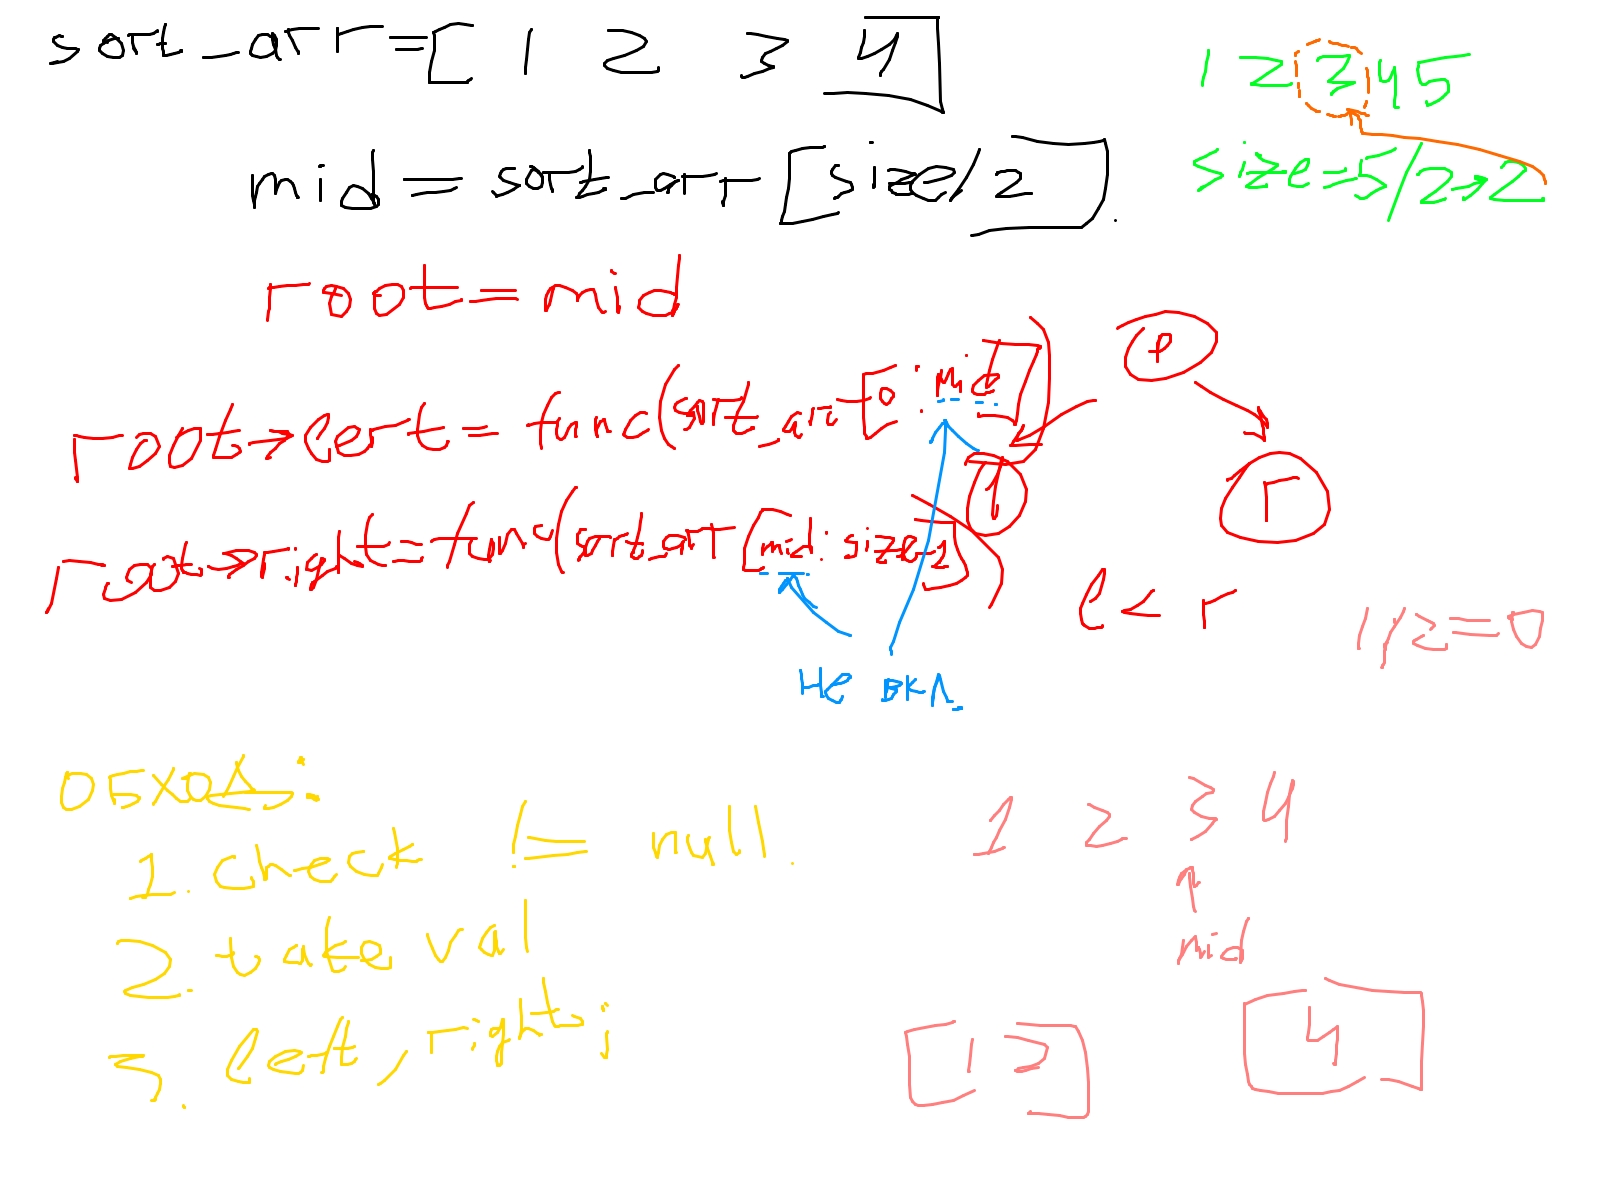 sort_arr=[ 1 2 3 4 ]
1 2 3 4 5
mid = sort_arr [size/2].
size=5/2→2
root=mid
p
root→left = func(sort_arr[0:mid])
l
r
root→right=func(sort_arr[mid:size-1])
l < r
1/2=0
не вкл.
ОБХОД:
1. check != null.
2. take val
3. left, right;
1 2 3 4
mid
[1 2]
[4]